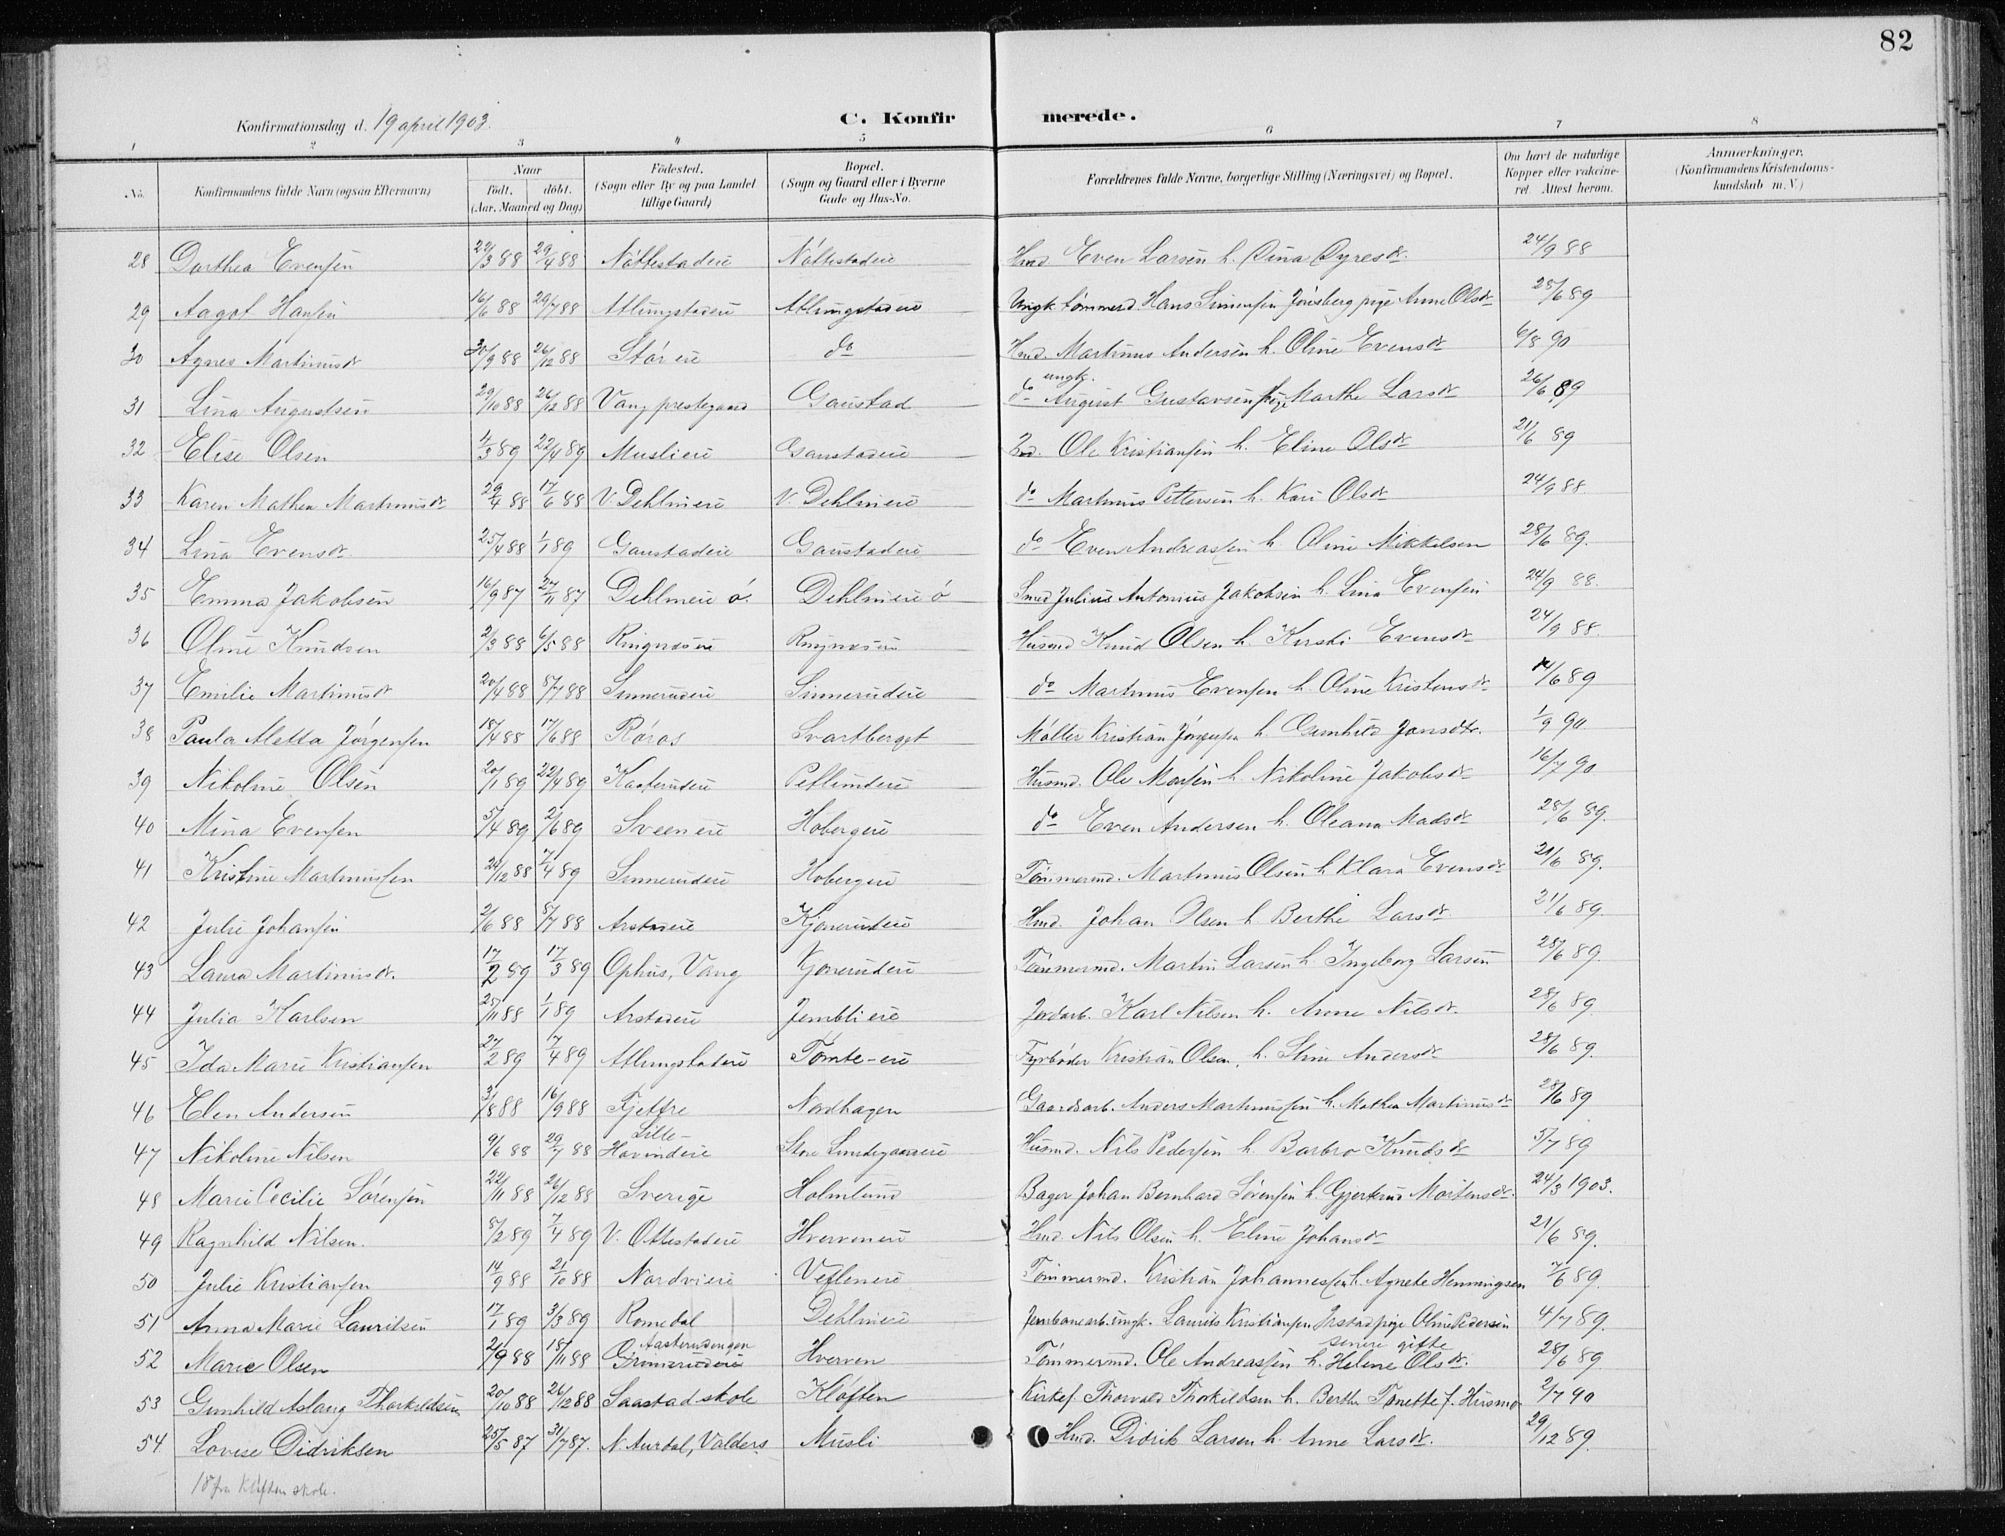 82
Konfirmationsdag d. 19 april 1903.
C. Konfirmerede.
1 2 3 4 5 6 7 8
No. Konfirmandens fulde Navn (ogsaa Efternavn) Naar født. døbt. (Aar, Maaned og Dag) Fødested. (Sogn eller By og paa Landet tillige Gaard) Bopæl. (Sogn og Gaard eller i Byerne Gade og Hus-No. Forældrenes fulde Navne, borgerlige Stilling (Næringsvei) og Bopæl. Om havt de naturlige Kopper eller vakcineret. Attest herom. Anmærkninger. (Konfirmandens Kristendomskundskab m. V.)
28 Dorthea Evensen 29/3 88 29/4 88 Nøttestadeie Nøttestadeie Hmd Even Larsen h. 24/9 88
29 Aagot Hansen 16/6 88 29/7 88 Atlungstadeie Atlungstadeie Ungk. tømmerm. Hans Simensen Jønsberg pige Anne Olsdr 28/6 89
30 Agnes Martinusdr 30/9 88 26/12 88 Stør eie do Hmd. Martinus Andersen h. Oline Evensdr 6/8 90
31 Lina Augustsen 29/10 88 26/12 88 Vang prestegaard Gaustad do ungk. August Gustavsen pige Marthe Larsdr 26/6 89
32 Elise Olsen 4/3 89 22/4 89 Muslieie Gaustadeie Hmd. Ole Kristiansen h. Eline Olsdr 21/6 89
33 Karen Mathea Martinusdr 29/4 88 17/6 88 V. Dehlineie V. Dehlineie do Martinus Pettersen h. Kari Olsdr 24/9 88.
34 Lina Evensdr. 25/4 88 1/1 89 Gaustadeie Gaustadeie do Even Andreassen h. Oline Mikkelsen 28/6 89.
35 Emma Jakobsen 16/9 87 27/11 87 Dehlineie ø. Dehlineie ø Smed Julius Antonius Jakobsen h. Lina Evensen 24/9 88.
36 Oline Knudsen 2/3 88 6/5 88 Ringnæseie Ringnæseie Husmd Knud Olsen h. Kirsti Evensdr 24/9 88.
37 Emilie Martinusdr 20/4 88 8/7 88 Sinnerudeie Sinnerudeie do Martinus Evensen h. Oline Kristensdr 14/6 89
38 Paula Aletta Jørgensen 18/4 88 17/6 88 Røros Svartberget Møller Kristian Jørgensen h. Gunhild Jonsdtr. 1/9 90
39 Nikoline Olsen 20/1 89 22/4 89 Kaaterudeie Peflundeie Husmd. Ole h. Nikoline Jakobsdr 16/7 90
40 Mina Evensen 5/4 89 2/6 89 Sveeneie Hobergeie do Even Andersen h. Oleana Madsdr 28/6 89.
41 Kristine Martinussen 24/12 88 7/4 89 Sinnerudeie Hobergeie Tømmermd. Martinus Olsen h. Klara Evensdr 21/6 89.
42 Julie Johansen 2/6 88 8/7 88 Arstadeie Kjonerudeie Hmd. Johan Olsen h. Berthe Larsdr 21/6 89.
43 Laura Martinusdr. 17/2 89 17/3 89 Ophus, Vang Kjonerudeie Tømmermd. Martin Larsen h. Ingeborg Larsen 28/6 89.
44 Julia Karlsen 25/11 88 1/1 89 Arstadeie Jemblieie Jordarb. Karl Nilsen h. Anne Nilsdr. 28/6 89.
45 Ida Marie Kristiansen 27/2 89 7/4 89 Atlungstadeie Tomte-eie Fyrbøder Kristian Olsen, h. Stine Andersdr 28/6 89.
46 Elen Andersen 3/8 88 16/9 88 Fjetre Nordhagen Gaardsarb. Anders Martinussen h. Mathea Martinusdr 28/6 89
47 Nikoline Nilsen 9/6 88 29/7 88 Lille-Hovindeie Store Lundegaareie Husmd. Nils Pedersen h. Barbro Knudsdr 5/7 89
48 Marie Cecilie Sørensen 22/11 88 26/12 88 Sverige Holmlund Bager Johan Bernhard Sørensen h. Gjertrud Mortensdr. 24/3 1903.
49 Ragnhild Nilsen. 8/2 89 7/4 89 V. Ottestadeie Hverveneie Hmd. Nils Olsen h. Eline Johansdr 21/6 89.
50 Julie Kristiansen 14/9 88 21/10 88 Nordvieie Vefleneie Tømmermd. Kristian Johannessen h. Agnete Henningsen 7/6 89.
51 Anna Marie Lauritsen 17/1 89 3/3 89 Romedal Dehlineie Jernbanearb. ungk. Laurits Kristiansen pige Oline Pedersen 4/7 89.
52 Marie Olsen 2/9 88 18/11 88 Aasterudengen Grimerudeie Hverven Tømmermd. Ole Andreassen h. senere gifte Helene Olsdr. 28/6 89.
53 Gunhild Aslaug Thorkildsen 20/10 88 26/12 88 Saastad skole Kløften Kirkes. Thorvald Thorkildsen h. Berthe Tonette f. Husmo 2/7 90
54 Lovise Didriksen 25/5 87 31/7 87. N. Aurdal, Valders Musli Hmd. Didrik Larsen h. Anne Larsdr. 29/12 89.
18 fra Kløften skole.